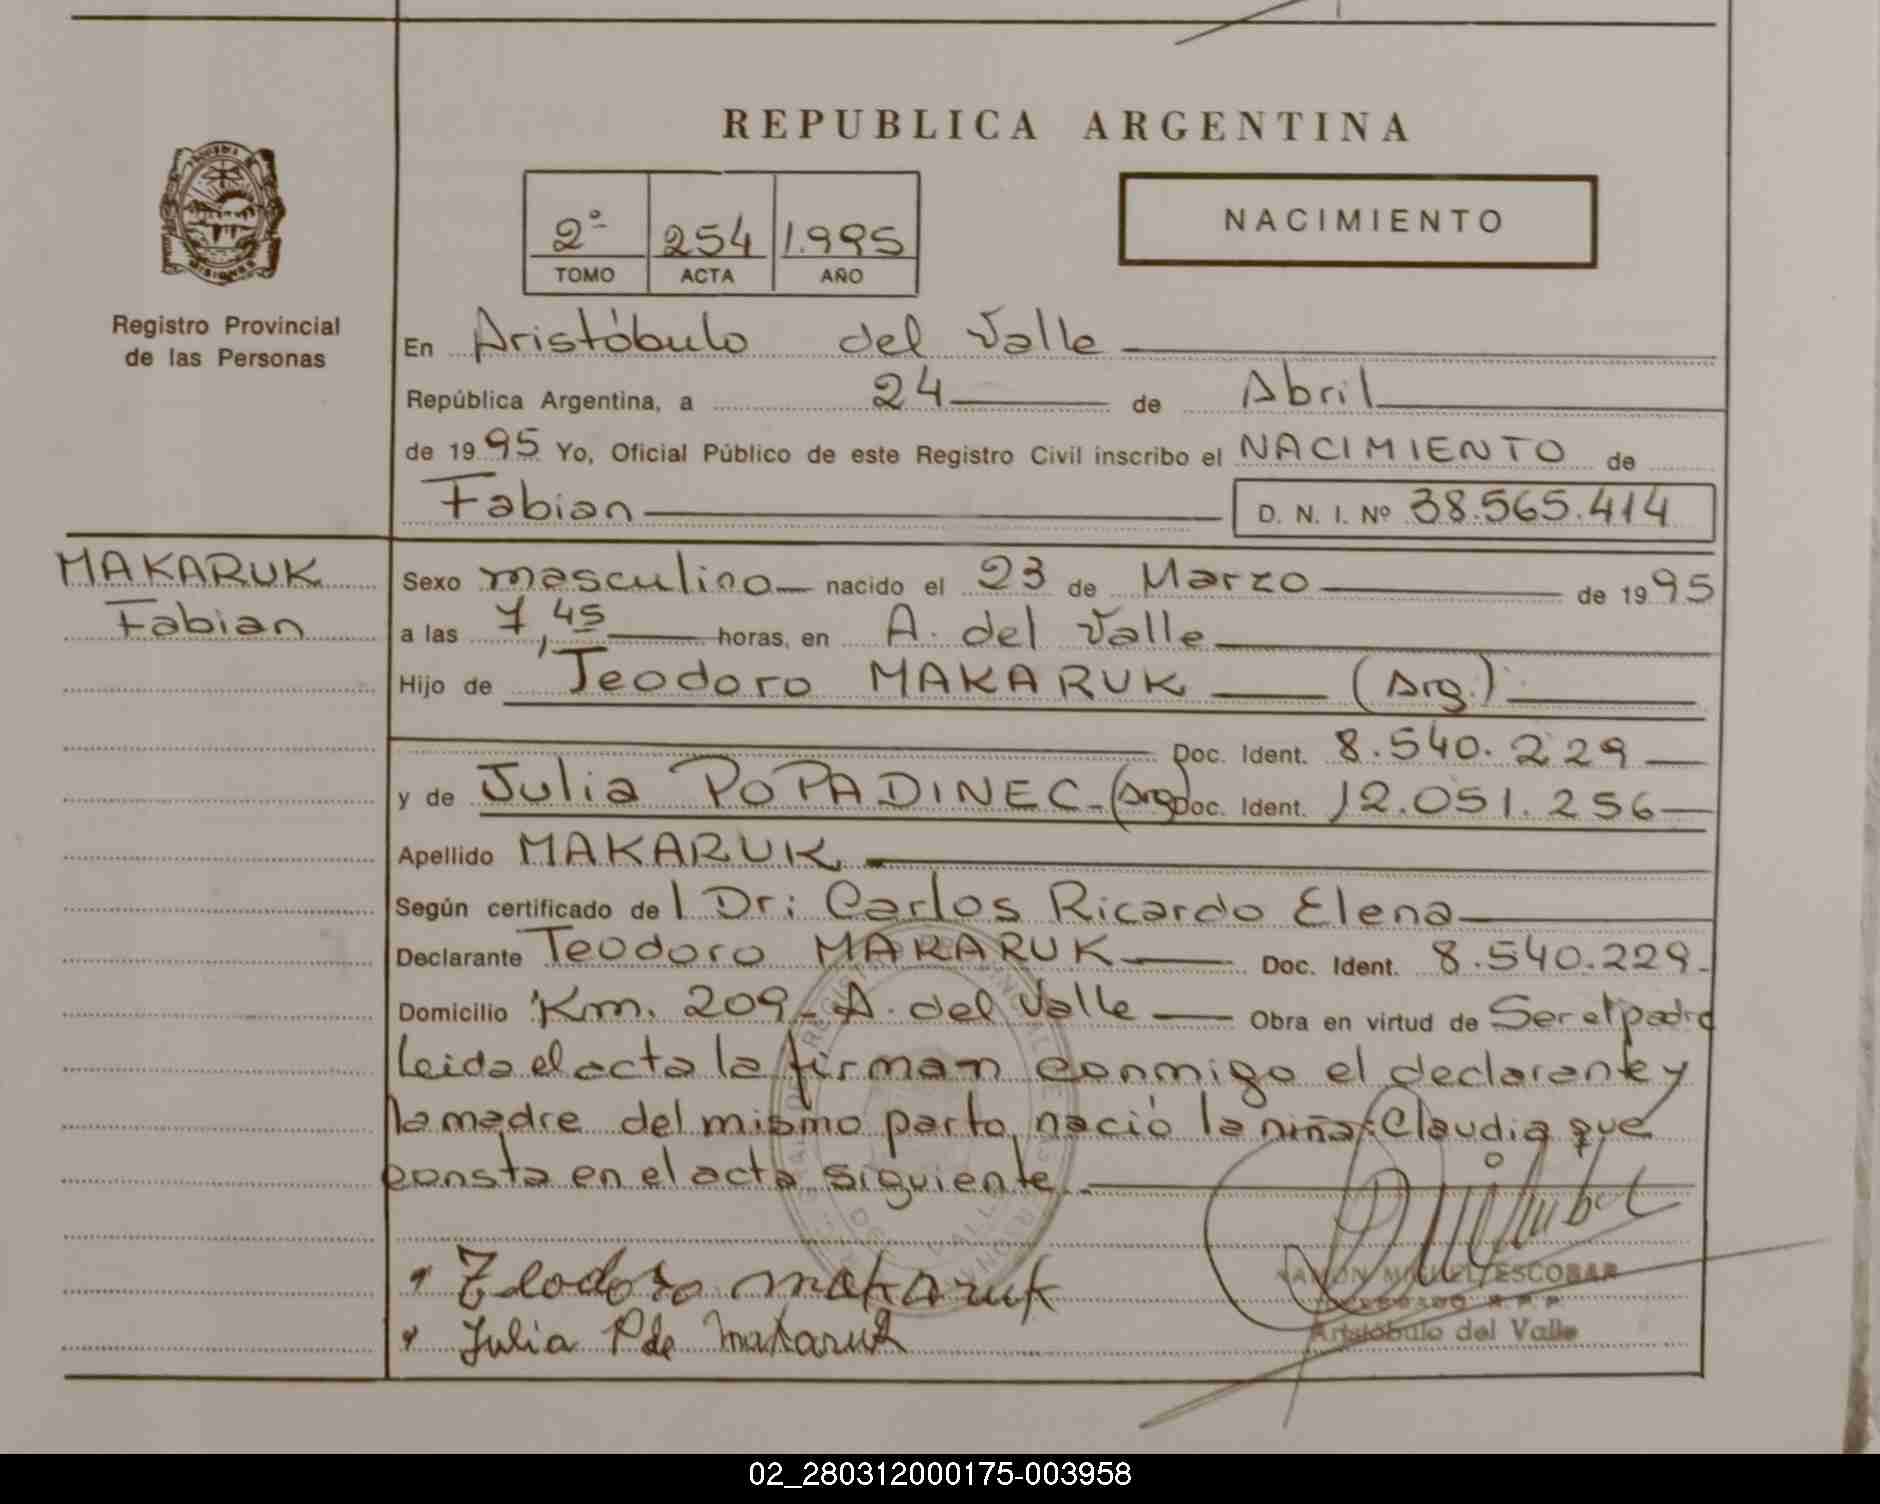 REPUBLICA ARGENTINA
MISIONES
Registro Provincial
de las Personas
2º 254 1.995
TOMO ACTA AÑO
NACIMIENTO
En Aristóbulo del Valle
República Argentina, a 24 de Abril
de 1995 Yo, Oficial Público de este Registro Civil inscribo el NACIMIENTO de
Fabian D. N. I. Nº 38.565.414
MAKARUK
Fabian
Sexo masculino nacido el 23 de Marzo de 1995
a las 7,45 horas, en A. del Valle
Hijo de Teodoro MAKARUK (Arg.)
Doc. Ident. 8.540.229
y de Julia POPADINEC - (Arg) Doc. Ident. 12.051.256
Apellido MAKARUK
Según certificado del Dr: Carlos Ricardo Elena
Declarante Teodoro MAKARUK Doc. Ident. 8.540.229.
Domicilio Km. 209 - A. del Valle Obra en virtud de Ser el padre
Leida el acta la firman conmigo el declarante y
la madre del mismo parto, nació la niña: Claudia que
consta en el acta siguiente.
Teodoro makaruk
Julia P de makaruk
RAMON MIGUEL ESCOBAR
DELEGADO R. P. P.
Aristóbulo del Valle
02_280312000175-003958